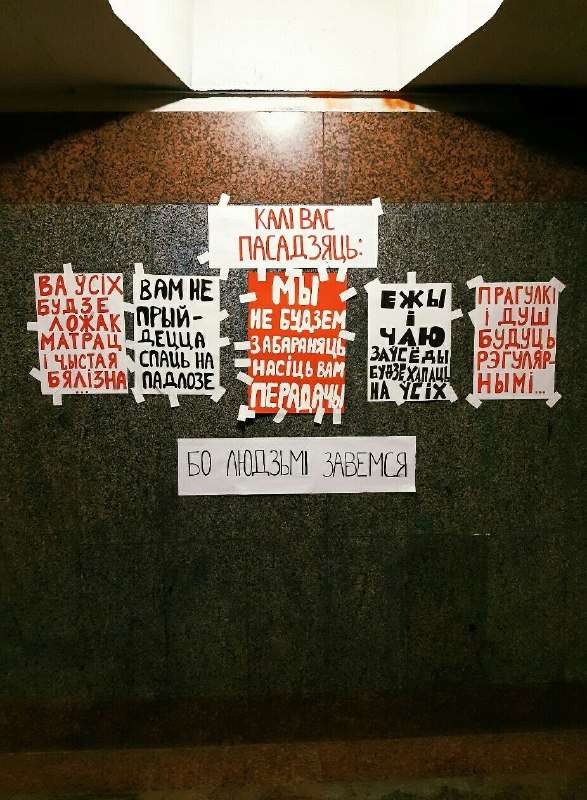 КАЛІ ВАС
ПАСАДЗЯЦЬ:
ВА ЎСІХ
БУДЗЕ
ЛОЖАК
МАТРАЦ
І ЧЫСТАЯ
БЯЛІЗНА
...
ВАМ НЕ
ПРЫЙ-
ДЕЦЦА
СПАЦЬ НА
ПАДЛОЗЕ
МЫ
НЕ БУДЗЕМ
ЗАБАРАНЯЦЬ
НАСІЦЬ ВАМ
ПЕРАДАЧЫ
ЕЖЫ
І
ЧАЮ
ЗАЎСЁДЫ
БУДЗЕ ХАПАЦЬ
НА ЎСІХ
ПРАГУЛКІ
І ДУШ
БУДУЦЬ
РЭГУЛЯР-
НЫМІ...
БО ЛЮДЗЬМІ ЗАВЕМСЯ